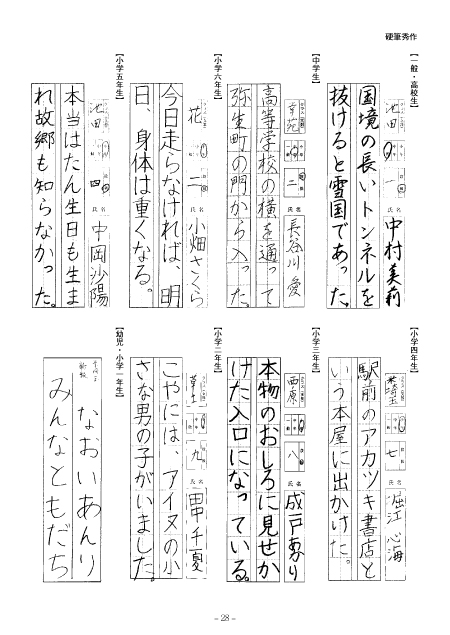 硬筆秀作
【一般・高校生】
池田
一
氏名
中村美莉
国境の長いトンネルを
抜けると雪国であった。
【中学生】
幸苑
三
氏名
長谷川愛
高等学校の横を通って
弥生町の門から入った。
【小学六年生】
花
二
氏名
小畑さくら
今日走らなければ、明
日、身体は重くなる。
【小学五年生】
池田
四
氏名
中岡沙陽
本当はたん生日も生ま
れ故郷も知らなかった。
【小学四年生】
七
氏名
堀江心海
駅前のアカツキ書店と
いう本屋に出かけた。
【小学三年生】
西原
八
氏名
成戸あかり
本物のおしろに見せか
けた入口になっている。
【小学二年生】
九
氏名
田中千夏
こやには、アイヌの小
さな男の子がいました。
【幼児・小学一年生】
なおいあんり
みんなともだち
- 28 -